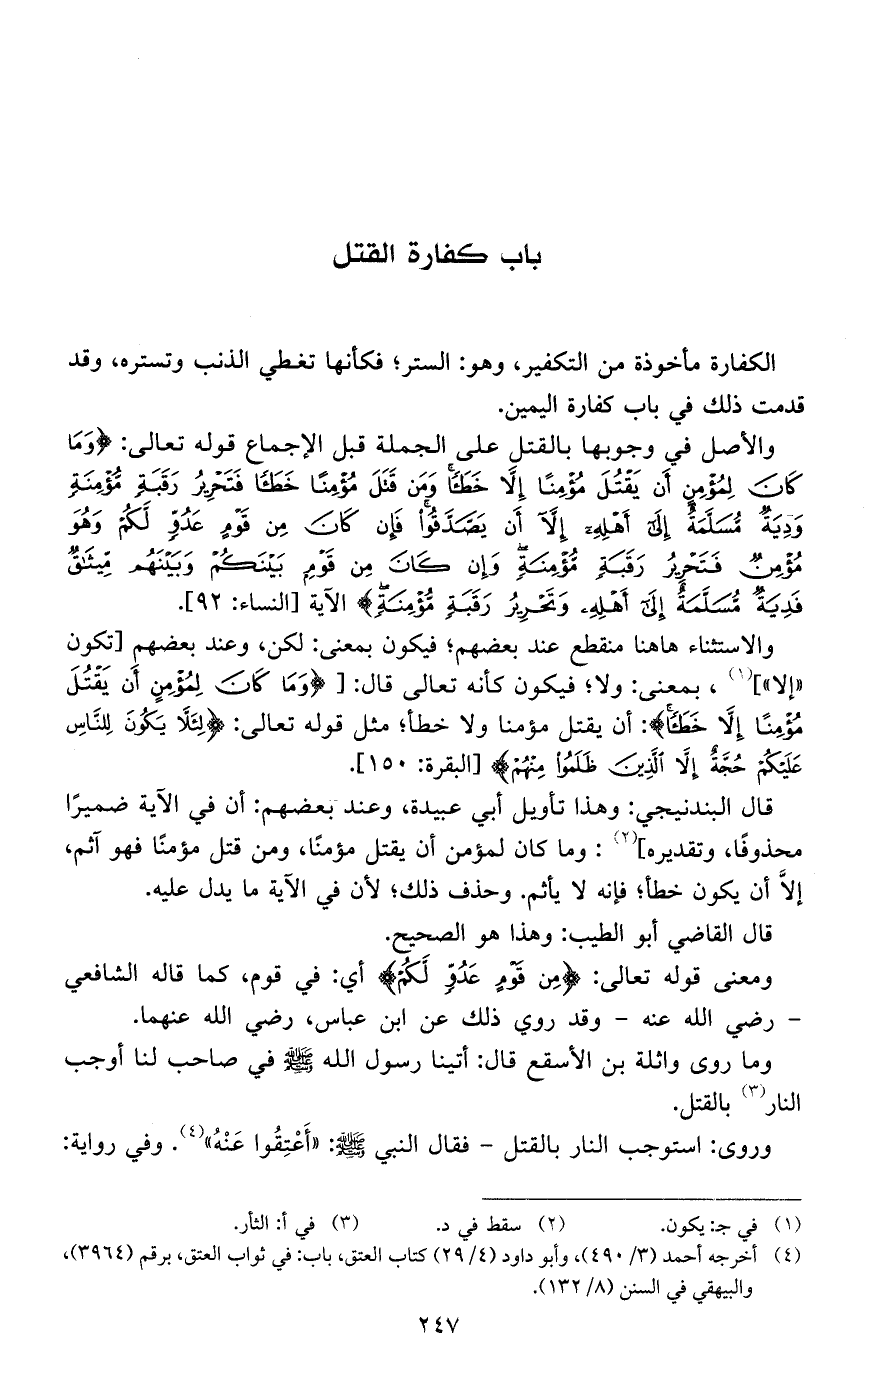 باب كفارة القتل
الكفارة مأخوذة من التكفير، وهو: الستر؛ فكأنها تغطي الذنب وتستره، وقد
قدمت ذلك في باب كفارة اليمين.
والأصل في وجوبها بالقتل على الجملة قبل الإجماع قوله تعالى: ﴿وَمَا
كَانَ لِمُؤْمِنٍ أَن يَقْتُلَ مُؤْمِنًا إِلَّا خَطَئًا وَمَن قَتَلَ مُؤْمِنًا خَطَئًا فَتَحْرِيرُ رَقَبَةٍ مُّؤْمِنَةٍ
وَدِيَةٌ مُّسَلَّمَةٌ إِلَىٰٓ أَهْلِهِۦٓ إِلَّآ أَن يَصَّدَّقُوا۟ فَإِن كَانَ مِن قَوْمٍ عَدُوٍّ لَّكُمْ وَهُوَ
مُؤْمِنٌ فَتَحْرِيرُ رَقَبَةٍ مُّؤْمِنَةٍ وَإِن كَانَ مِن قَوْمٍ بَيْنَكُمْ وَبَيْنَهُم مِّيثَٰقٌ
فَدِيَةٌ مُّسَلَّمَةٌ إِلَىٰٓ أَهْلِهِۦ وَتَحْرِيرُ رَقَبَةٍ مُّؤْمِنَةٍ﴾ الآية [النساء: ٩٢].
والاستثناء هاهنا منقطع عند بعضهم؛ فيكون بمعنى: لكن، وعند بعضهم [تكون
«إلا»](١) ، بمعنى: ولا؛ فيكون كأنه تعالى قال: [ ﴿وَمَا كَانَ لِمُؤْمِنٍ أَن يَقْتُلَ
مُؤْمِنًا إِلَّا خَطَئًا﴾: أن يقتل مؤمنا ولا خطأ؛ مثل قوله تعالى: ﴿لِئَلَّا يَكُونَ لِلنَّاسِ
عَلَيْكُمْ حُجَّةٌ إِلَّا ٱلَّذِينَ ظَلَمُوا۟ مِنْهُمْ﴾ [البقرة: ١٥٠].
قال البندنيجي: وهذا تأويل أبي عبيدة، وعند بعضهم: أن في الآية ضميرًا
محذوفًا، وتقديره](٢) : وما كان لمؤمن أن يقتل مؤمنًا، ومن قتل مؤمنًا فهو آثم،
إلاَّ أن يكون خطأ؛ فإنه لا يأثم. وحذف ذلك؛ لأن في الآية ما يدل عليه.
قال القاضي أبو الطيب: وهذا هو الصحيح.
ومعنى قوله تعالى: ﴿مِن قَوْمٍ عَدُوٍّ لَّكُمْ﴾ أي: في قوم، كما قاله الشافعي
- رضي الله عنه - وقد روي ذلك عن ابن عباس، رضي الله عنهما.
وما روى واثلة بن الأسقع قال: أتينا رسول الله ﷺ في صاحب لنا أوجب
النار(٣) بالقتل.
وروى: استوجب النار بالقتل - فقال النبي ﷺ: «أَعْتِقُوا عَنْهُ»(٤). وفي رواية:
(١) في جـ: يكون. (٢) سقط في د. (٣) في أ: الثأر.
(٤) أخرجه أحمد (٣/ ٤٩٠)، وأبو داود (٤/ ٢٩) كتاب العتق، باب: في ثواب العتق، برقم (٣٩٦٤)،
والبيهقي في السنن (٨/ ١٣٢).
٢٤٧